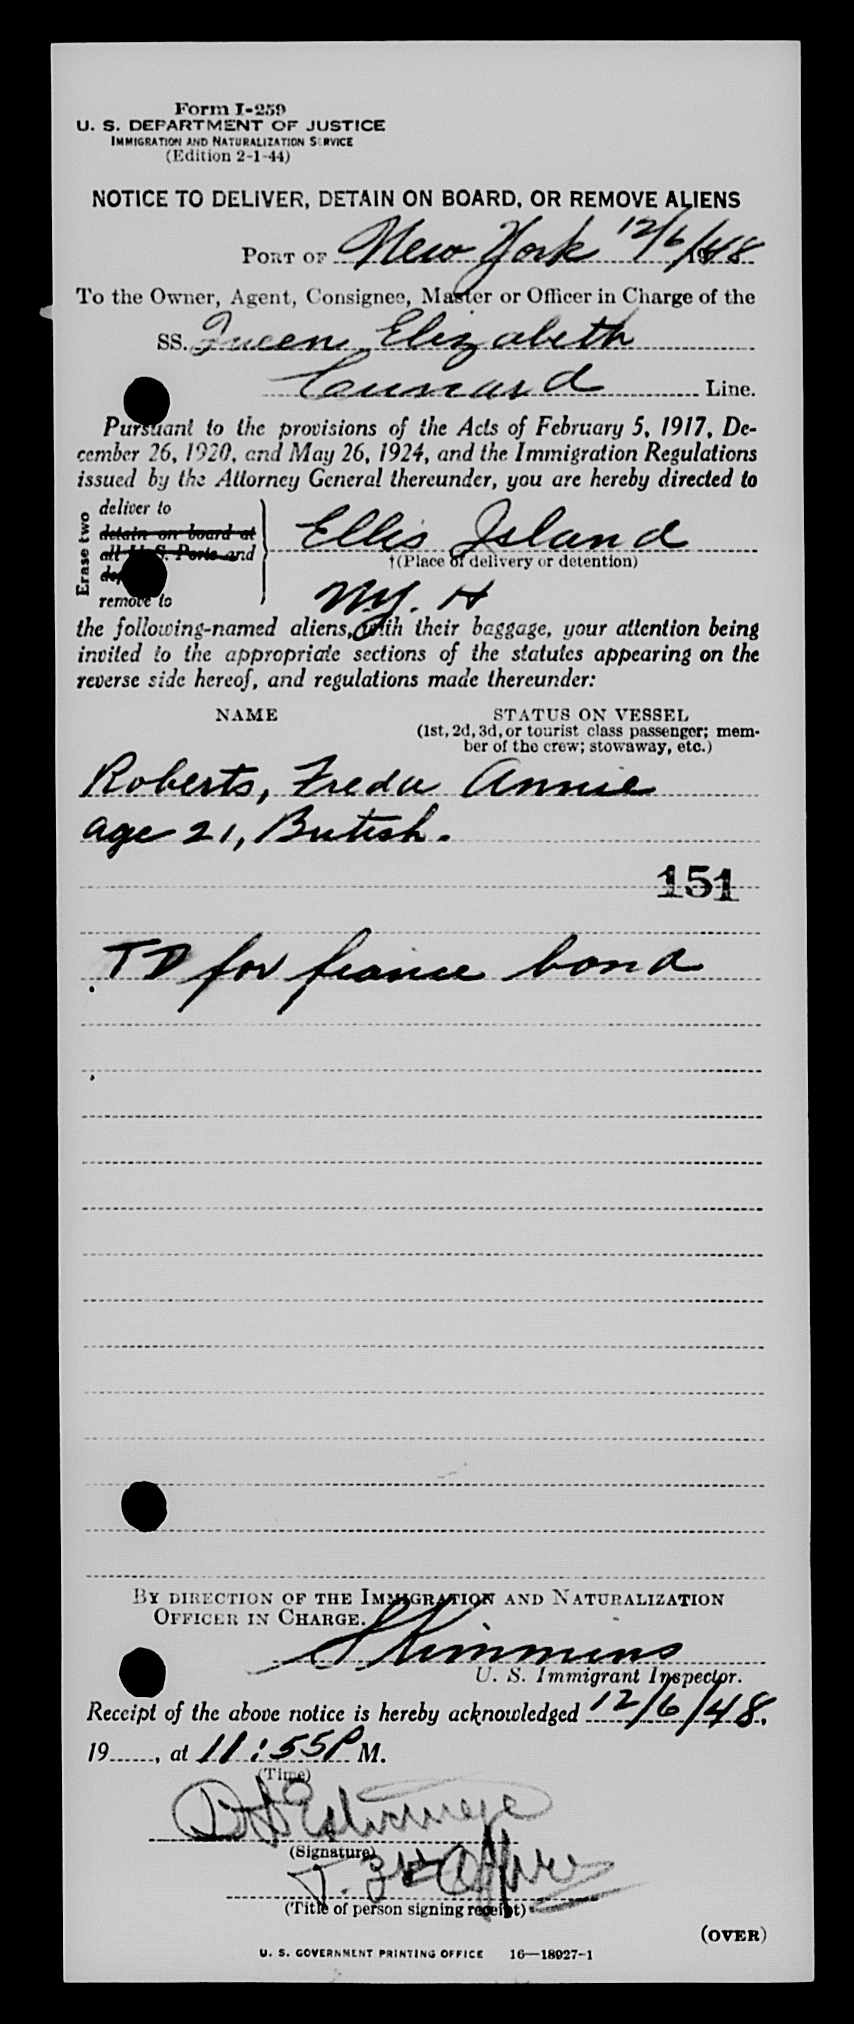 Form I-259
U. S. DEPARTMENT OF JUSTICE
IMMIGRATION AND NATURALIZATION SERVICE
(Edition 2-1-44)
NOTICE TO DELIVER, DETAIN ON BOARD, OR REMOVE ALIENS
PORT OF New York 12/6/48
To the Owner, Agent, Consignee, Master or Officer in Charge of the
SS. Queen Elizabeth
Cunard Line.
Pursuant to the provisions of the Acts of February 5, 1917, De-
cember 26, 1920, and May 26, 1924, and the Immigration Regulations
issued by the Attorney General thereunder, you are hereby directed to
Erase two
deliver to
detain on board at
all U. S. Ports and
remove to
Ellis Island
†(Place of delivery or detention)
NY. H
the following-named aliens, with their baggage, your attention being
invited to the appropriate sections of the statutes appearing on the
reverse side hereof, and regulations made thereunder:
NAME STATUS ON VESSEL
(1st, 2d, 3d, or tourist class passenger; mem-
ber of the crew; stowaway, etc.)
Roberts, Freda Annie
age 21, British.
151
TD for fiance bond
BY DIRECTION OF THE IMMIGRATION AND NATURALIZATION
OFFICER IN CHARGE.
S Kimmins
U. S. Immigrant Inspector.
Receipt of the above notice is hereby acknowledged 12/6/48,
19......, at 11:55P M.
(Time)
(Signature)
(Title of person signing receipt)
(OVER)
U. S. GOVERNMENT PRINTING OFFICE 16—18927-1